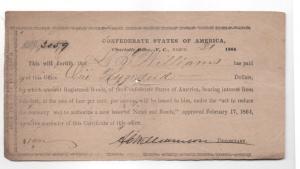 No. 3059
CONFEDERATE STATES OF AMERICA,
Charlotte Office, N. C., MARCH 31 1864
This will certify, that L. J. Williams has paid
at this Office One Hundred Dollars,
for which amount Registered Bonds, of the Confederate States of America, bearing interest from
this date, at the rate of four per cent. per annum, will be issued to him, under the "act to reduce
the currency and to authorize a new issue of Notes and Bonds," approved February 17, 1864,
upon the surrender of this Certificate at this office.
Williamson
DEPOSITARY